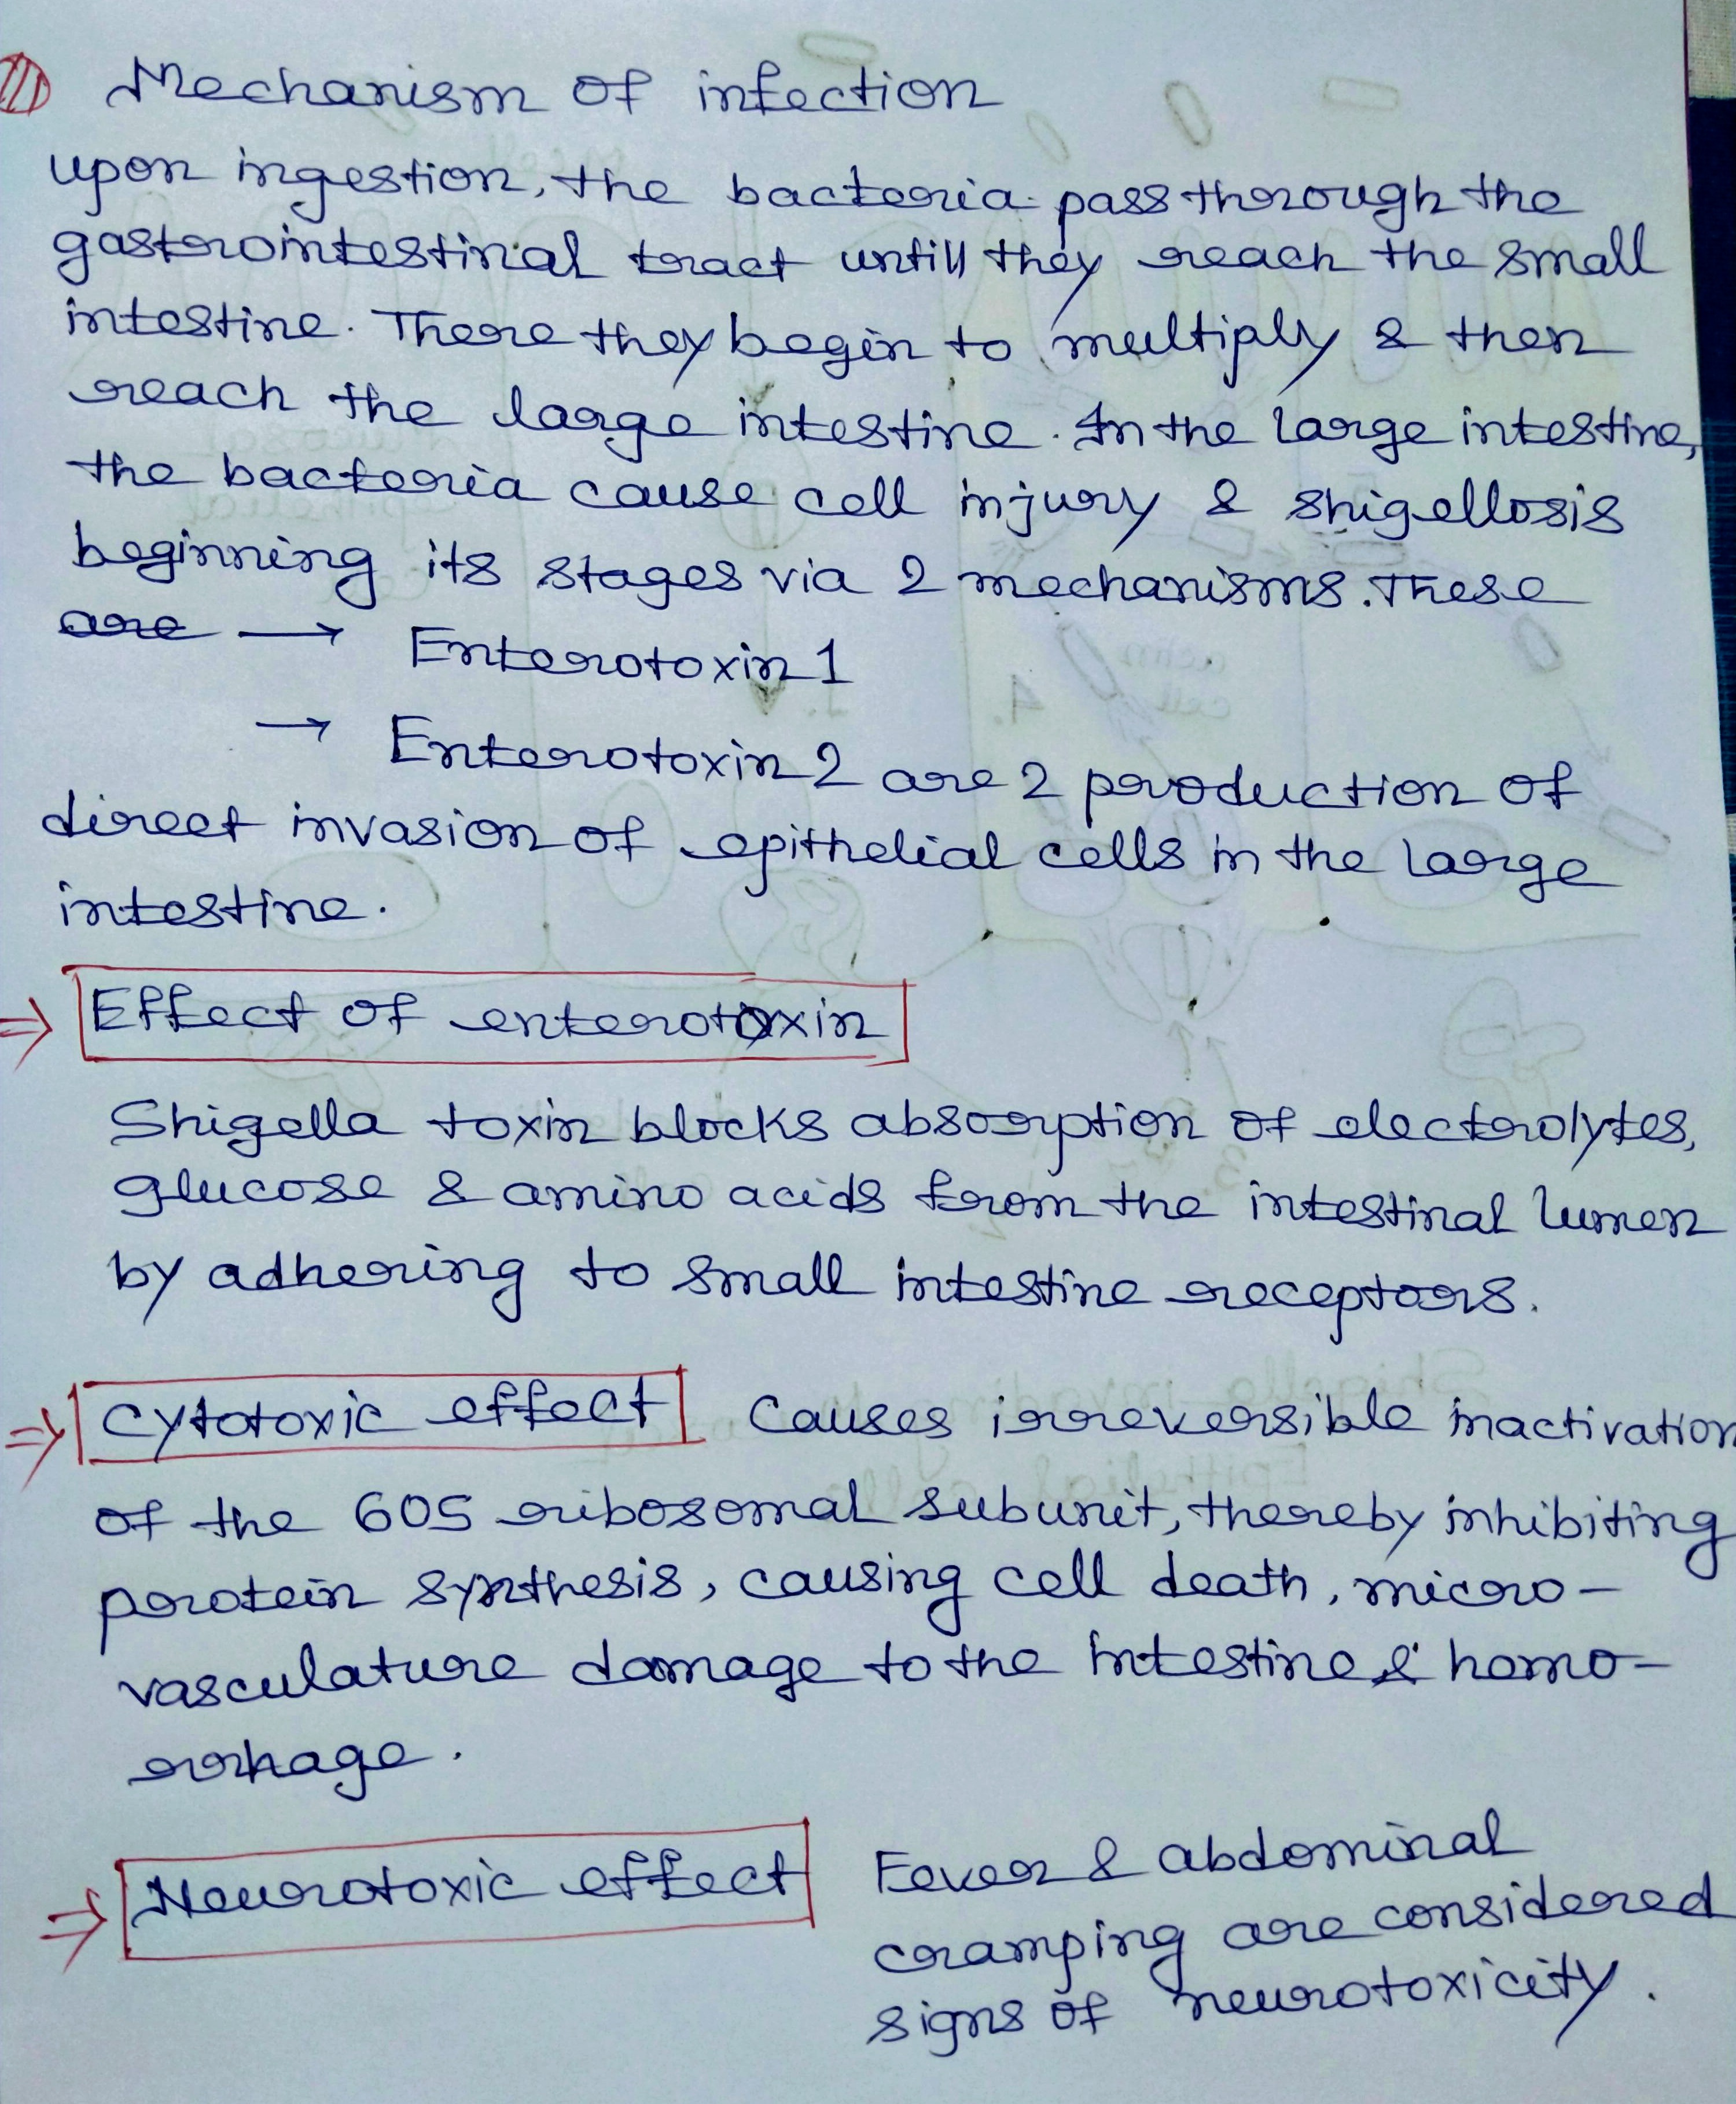 Mechanism of infection
upon ingestion, the bacteria pass through the
gastrointestinal tract untill they reach the small
intestine. There they begin to multiply & then
reach the large intestine. In the large intestine,
the bacteria cause cell injury & shigellosis
beginning its stages via 2 mechanisms. These
are → Enterotoxin 1
→ Enterotoxin 2 are 2 production of
direct invasion of epithelial cells in the large
intestine.
⇒ Effect of enterotoxin
Shigella toxin blocks absorption of electrolytes,
glucose & amino acids from the intestinal lumen
by adhering to small intestine receptors.
⇒ Cytotoxic effect Causes irreversible inactivation
of the 60S ribosomal subunit, thereby inhibiting
protein synthesis, causing cell death, micro-
vasculature damage to the intestine & hemo-
rrhage.
⇒ Neurotoxic effect Fever & abdominal
cramping are considered
signs of neurotoxicity.